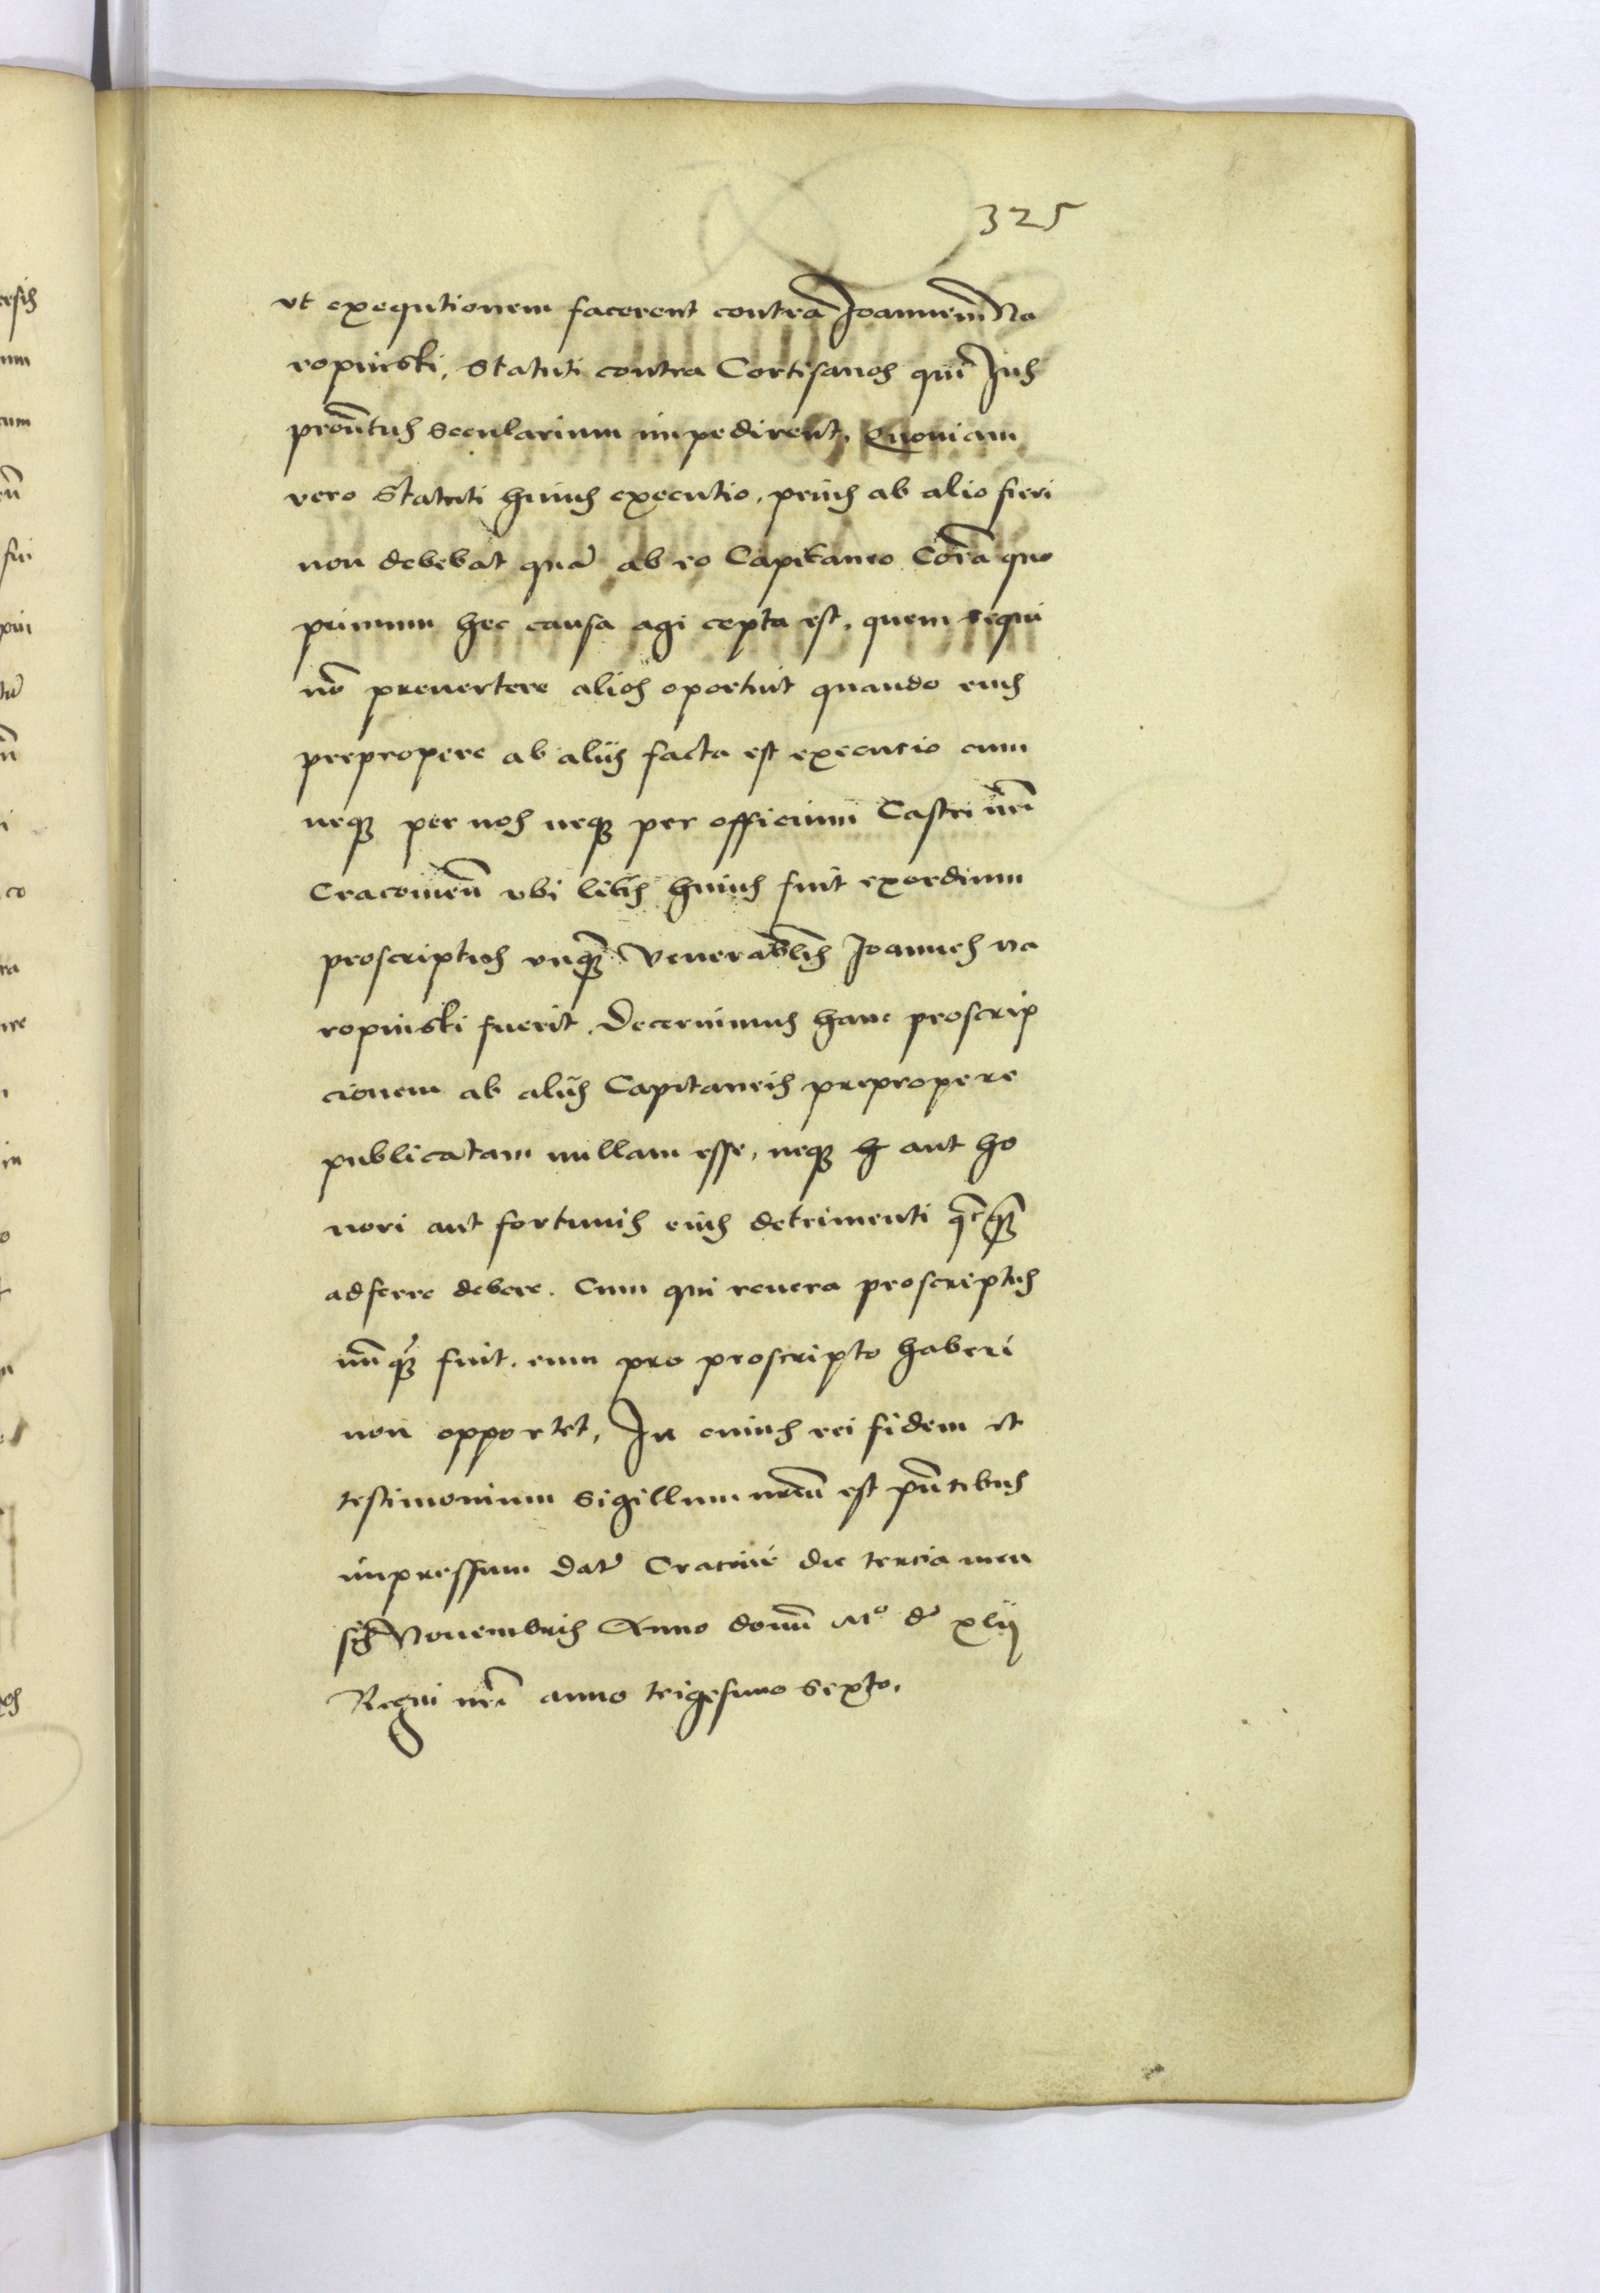 325
vt exequtionem facerent contra Joannem Na
ropinski, Statuti contra Cortisanos qui Jus
prountus Secularium impedirent, Quoniam
vero Statuti huius executio, prius ab alio fieri
non debebat quā ab eo Capitaneo Corā quo
primum hec causa agi cepta est, quem sequi
nō preuertere alios oportuit quando eius
prepropere ab alijs facta est execucio cum
neqz per nos neqz per officium Castri nrī
Cracouieñ vbi litis huius fuit exordium
proscriptus vnqz Venerablis Joannes na
ropinski fuerit. Decernimus hanc proscrip
cionem ab alijs Capitaneis prepropere
publicatam nullam esse, neqz aut ho
nori aut fortunis eius detrimenti
adferre debere. Cum qui reuera proscriptus
nūqz fuit. eum pro proscripto haberi
non opportet, In cuius rei fidem et
testimonium Sigillum nrm̄ est pn̄tibus
impressum Dat Cracouie die tercia men
sis Nouembris Anno domi Mo d xlij
Regni nrī anno trigesimo Sexto.